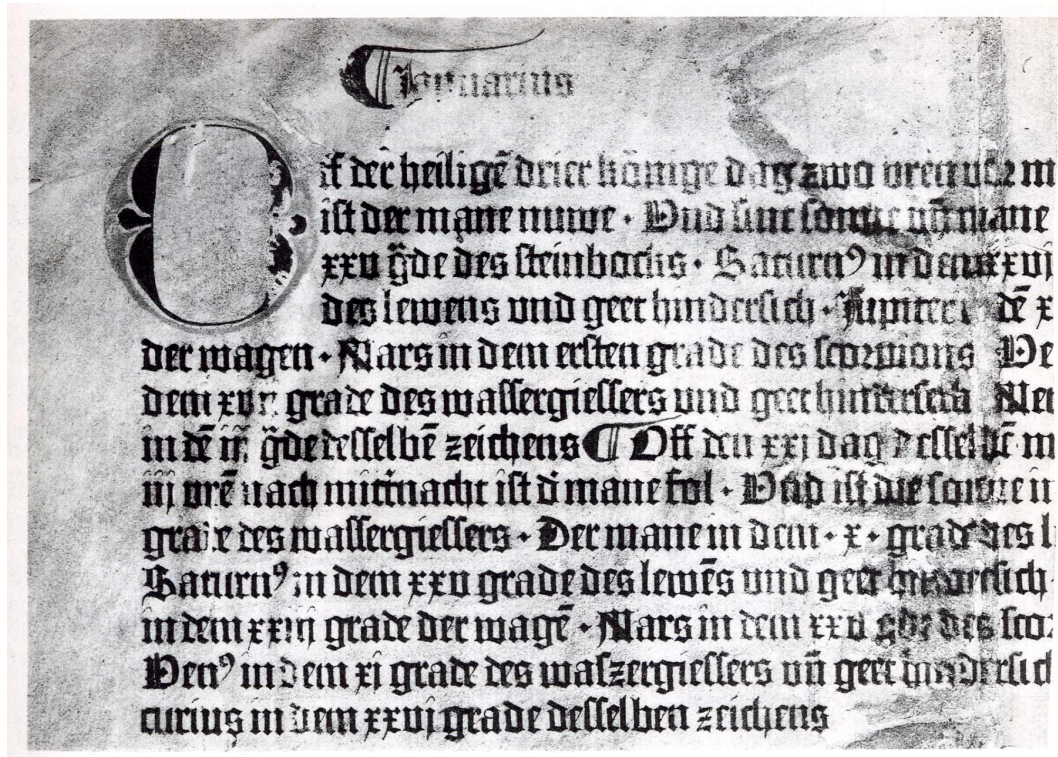 Januarius
Off der heiligē drier kōnige dag zwo oren vor m
ist der mane nuwe · Vnd sint sonne vñ mane
xxv g̃de des steinbocks · Saturnꝰ in dem xxvj
des lewens vnd geet hindersich · Jupiter dē x
der wagen · Mars in dem ersten grade des scorpions Ve
dem grade des wassergiessers vnd geet hindersich Mer
in dē iij g̃de desselbē zeichens ¶ Off den xxj dag desselbē m
iiij orē nach mitt̄nacht ist d̄ mane fol · Vnd ist die sonne in
grade des wassergiessers · Der mane in dem · x · grade des l
Saturnꝰ in dem xxv grade des lewēs vnd geet hindersich
in dem xxiij grade der wagē · Mars in dem xxv gde des sco
Venꝰ in dem xj grade des waszergiessers vñ geet hindersich
curius in dem xxvj grade desselben zeichens